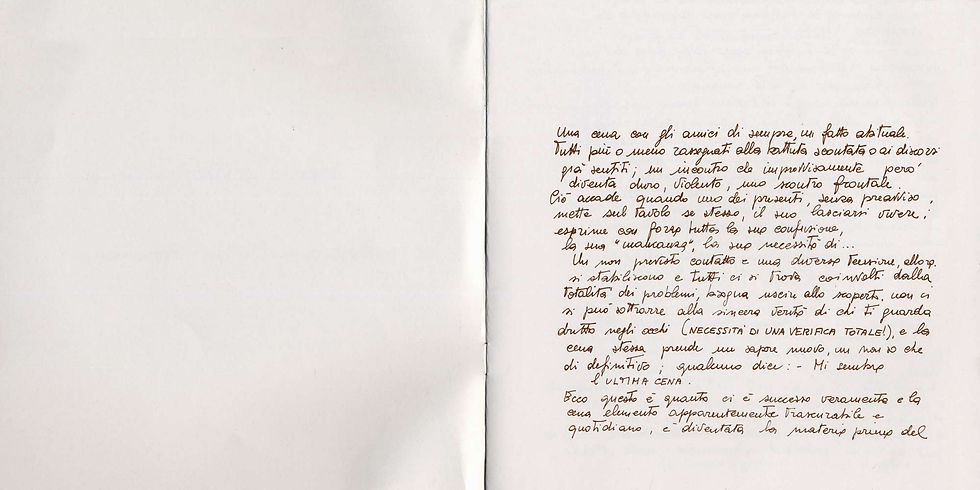 Una cena con gli amici di sempre, un fatto abituale.
Tutti più o meno rassegnati alla battuta scontata o ai discorsi
già sentiti; un incontro che improvvisamente però
diventa duro, violento, uno scontro frontale.
Ciò accade quando uno dei presenti, senza preavviso,
mette sul tavolo se stesso, il suo lasciarsi vivere;
esprime con forza tutta la sua confusione,
la sua "mancanza", la sua necessità di...
Un non previsto contatto e una diversa tensione, allora,
si stabiliscono e tutti ci si trova coinvolti dalla
totalità dei problemi, bisogna uscire allo scoperto, non ci
si può sottrarre alla sincera verità di chi ti guarda
dritto negli occhi (NECESSITÀ DI UNA VERIFICA TOTALE!), e la
cena stessa prende un sapore nuovo, un non so che
di definitivo; qualcuno dice: - Mi sembra
l'ULTIMA CENA.
Ecco questo è quanto ci è successo veramente e la
cena elemento apparentemente trascurabile e
quotidiano, è diventata la materia prima del